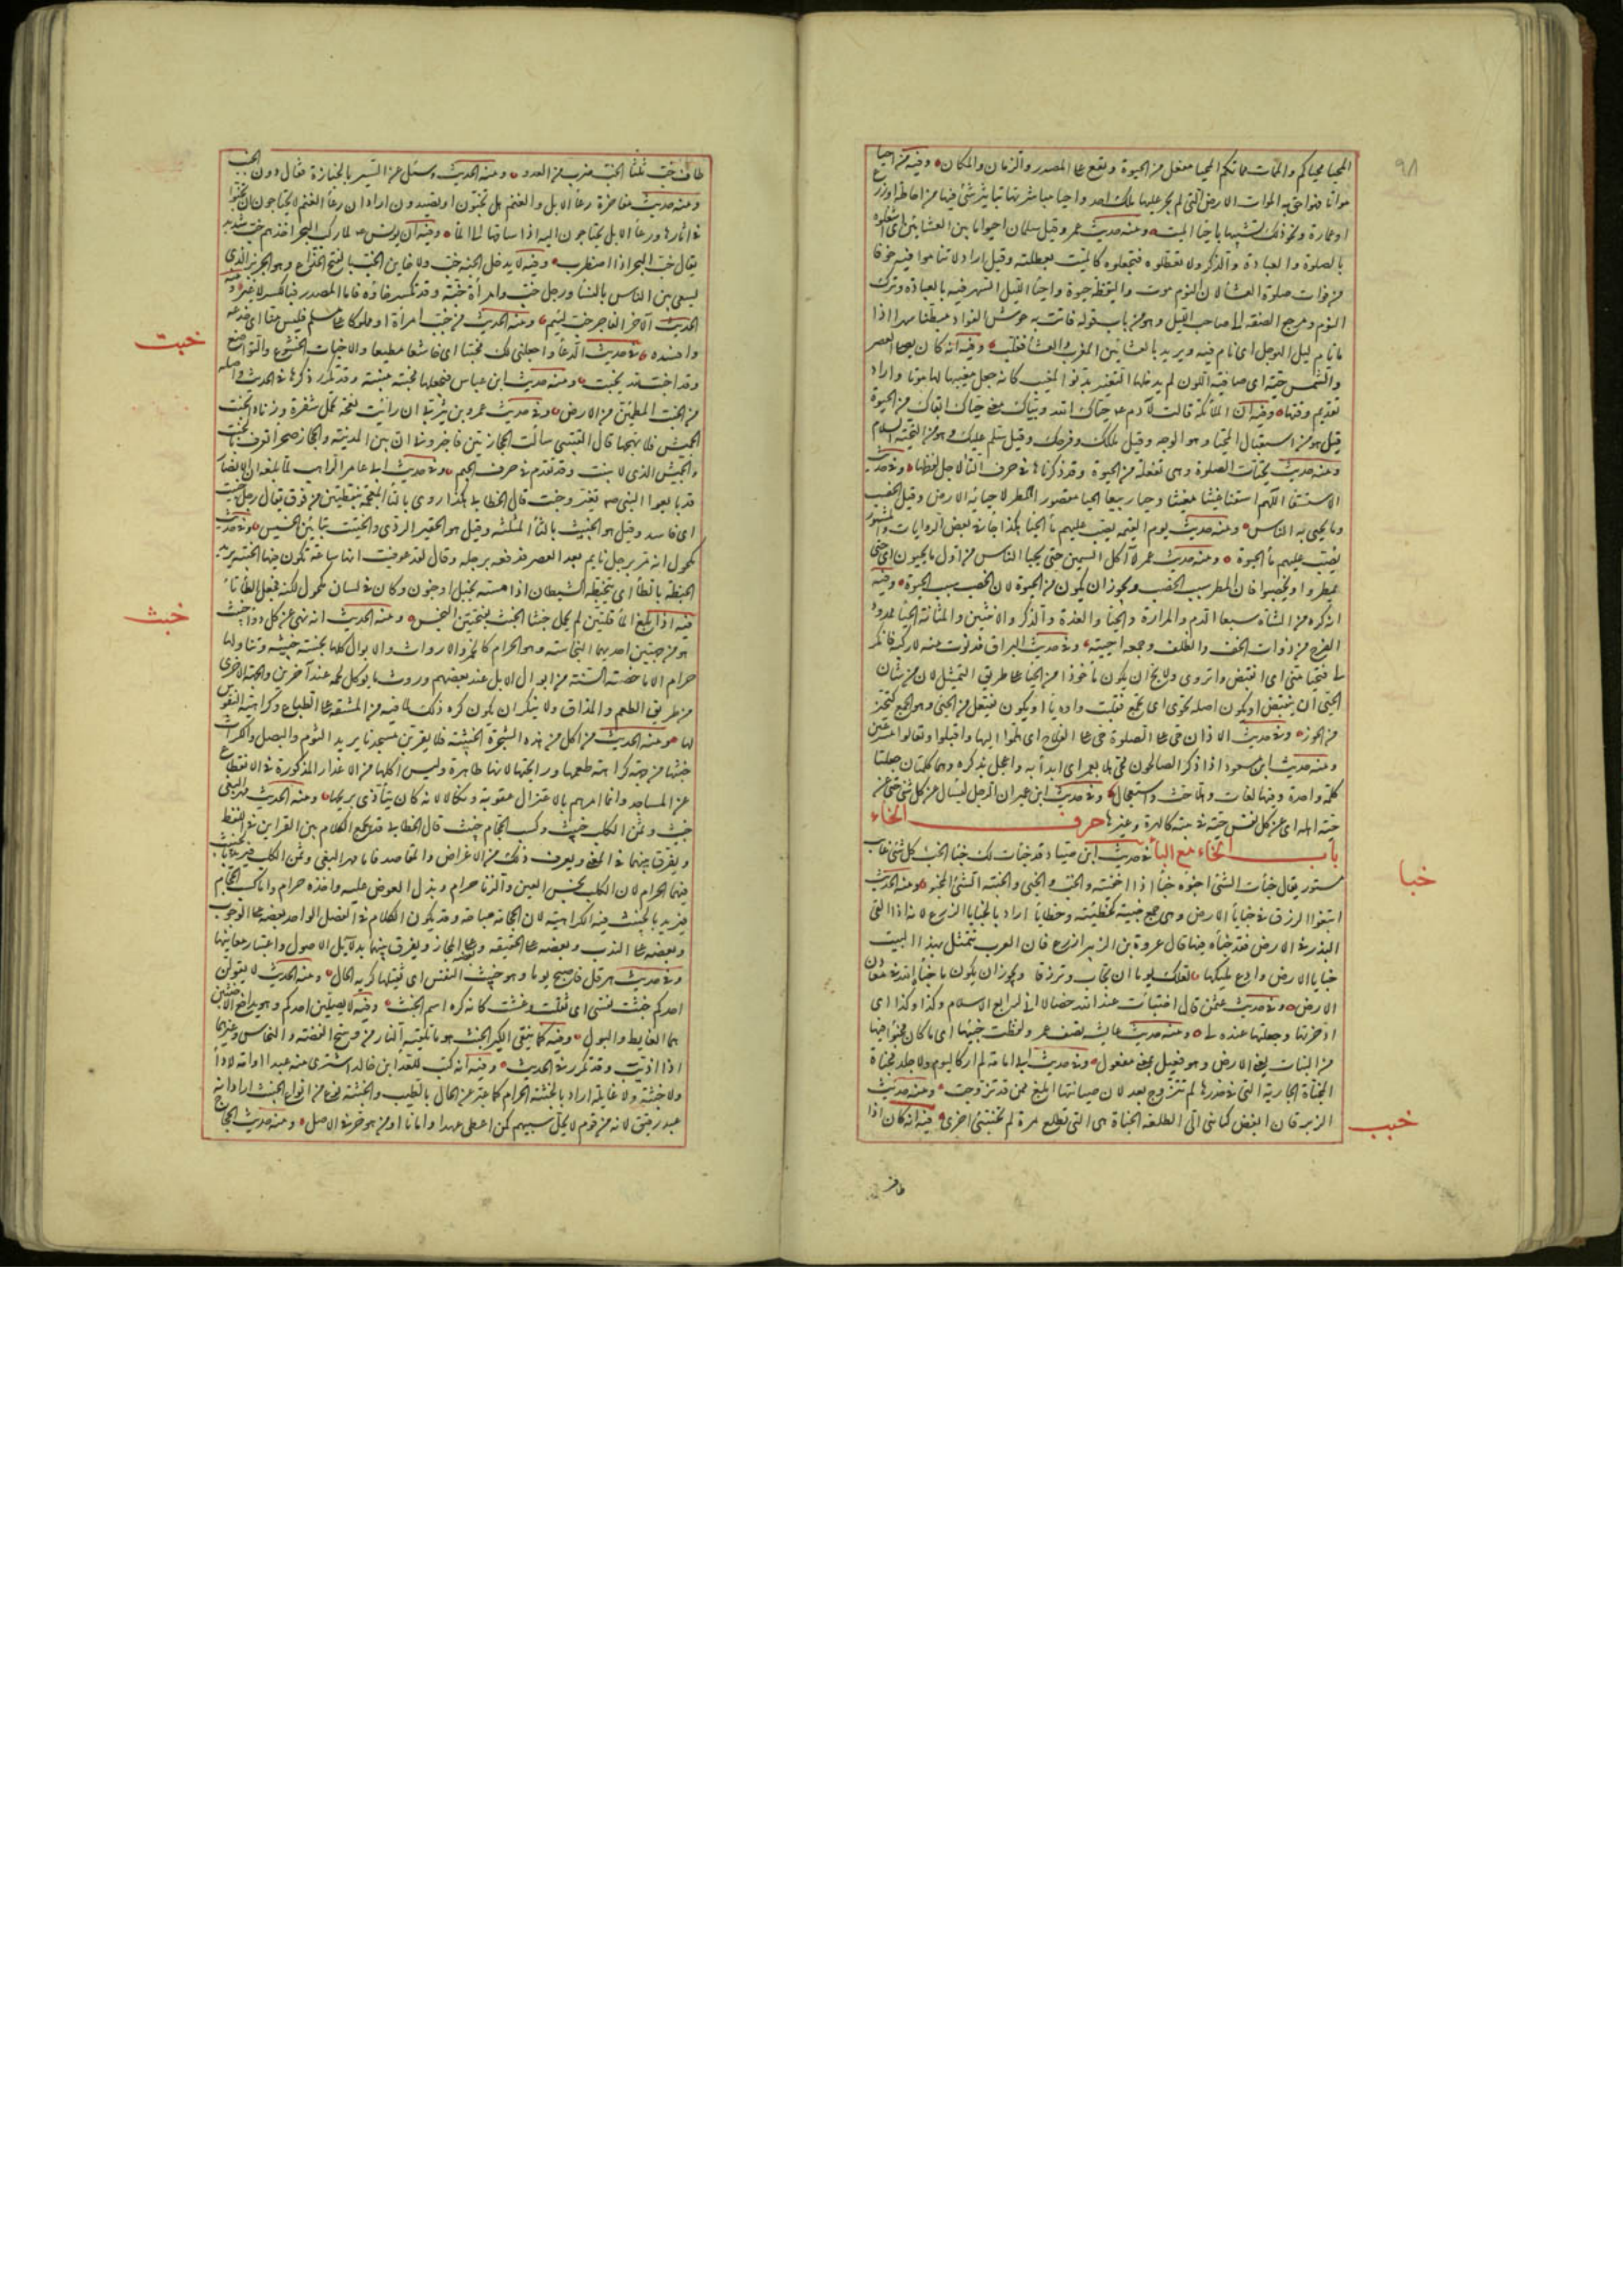 ٩٨
المحيا محياكم والممات مماتكم المحيا مفعل من الحيوة ويقع على المصدر والزمان والمكان وفيه من احيا
مواتا فهو احق به الموات الارض التى لم يجر عليها ملك احد واحياها مباشرتها بتأثير شئ فيها من احاطة او زرع
او عمارة ونحو ذلك تشبيها باحياء الميت ومنه حديث عمر وقيل سلمان احيوا ما بين العشائين اى اشغلوه
بالصلوة والعبادة والذكر ولا تعطلوه فتجعلوه كالميت بعطلته وقيل اراد لا تناموا فيه خوفا
من فوات صلوة العشاء لان النوم موت واليقظة حيوة واحياء الليل السهر فيه بالعبادة وترك
النوم ومرجع الصفة الى صاحب الليل وهو من باب قوله فاتت به حوش الفؤاد مبطنا سهدا اذا
ما نام ليل الهوجل اى نام فيه ويريد بالعشائين المغرب والعشاء فغلب وفيه انه كان يصلى العصر
والشمس حية اى صافية اللون لم يدخلها التغير بدنو المغيب كانه جعل مغيبها لها موتا واراد
تقديم وقتها وفيه ان الملائكة قالت لآدم عم حياك الله وبياك معنى حياك ابقاك من الحيوة
قيل هو من استقبال المحيا وهو الوجه وقيل ملكك وفرحك وقيل سلم عليك وهو من التحية السلام
ومنه حديث تحيات الصلوة وهى تفعلة من الحيوة وقد ذكرناها فى حرف التاء لاجل لفظها وفى حديث
الاستسقاء اللهم اسقنا غيثا مغيثا وحيا ربيعا الحيا مقصور المطر لاحيائه الارض وقيل الخصب
وما يحيى به الناس ومنه حديث يوم القيمة يصب عليهم ماء الحيا هكذا جاء فى بعض الروايات والمشهور
يصب عليهم ماء الحيوة ومنه حديث عمر لا آكل السمين حتى يحيا الناس من اول ما يحيون اى حتى
يمطروا ويخصبوا فان المطر سبب الخصب ويجوز ان يكون من الحيوة لان الخصب سبب الحيوة وفيه
انه كره من الشاة سبعا الدم والمرارة والحياء والغدة والذكر والانثيين والمثانة الحياء ممدودا
الفرج من ذوات الخف والظلف وجمعه احيية وفى حديث البراق فدنوت منه لاركبه فانكر
لى فتحيا منى اى انقبض وانزوى ولا يخ ان يكون مأخوذا من الحياء على طريق التمثيل لان من شان
الحيى ان ينقبض او يكون اصله تحوى اى تجمع فقلبت واوه ياء او يكون تفيعل من الحى وهو الجمع كتحيز
من الحوز وفى حديث الاذان حى على الصلوة حى على الفلاح اى هلموا اليها واقبلوا وتعالوا مسرعين
ومنه حديث ابن مسعود اذا ذكر الصالحون فحى هلا بعمر اى ابدأ به واعجل بذكره وهما كلمتان جعلتا
كلمة واحدة وفيها لغات وهلا حث واستعجال وفى حديث ابن عمير ان الرجل ليسأل عن كل شئ حتى عن
حية اهله اى عن كل نفس حية فى بيته كالهرة وغيرها حرف الخاء
باب الخاء مع الباء فى حديث ابن صياد قد خبأت لك خبأ الخبء كل شئ غائب
خبا
مستور يقال خبأت الشئ اخبؤه خبأ اذا اخفيته والخبء والخبى والخبيئة الشئ المخبوء ومنه الحديث
ابتغوا الرزق فى خبايا الارض وهى جمع خبيئة كخطيئة وخطايا اراد بالخبايا الزرع لانه اذا القى
البذر فى الارض فقد خبأه فيها قال عروة بن الزبير ازرع فان العرب تتمثل بهذا البيت
خبايا الارض وادع مليكها لعلك يوما ان تجاب وترزقا ويجوز ان يكون ما خبأه الله فى معادن
الارض وفى حديث عثمن قال اختبأت عند الله خصالا انى لرابع الاسلام وكذا وكذا اى
ادخرتها وجعلتها عنده لى ومنه حديث عايشه تصف عمر ولفظت خبيئها اى ما كان مخبوءا فيها
من النبات يعنى الارض وهو فعيل بمعنى مفعول وفى حديث ابى امامة لم ار كاليوم ولا جلد مخبأة
المخبأة الجارية التى فى خدرها لم تتزوج بعد لان صيانتها ابلغ ممن قد تزوجت ومنه حديث
الزبرقان ابغض كنائنى الى الطلعة الخبأة هى التى تطلع مرة ثم تختبئ اخرى فيه انه كان اذا
خبب
طاف
طاف خب ثلثا الخبب ضرب من العدو ومنه الحديث وسئل عن السير بالجنازة فقال ما دون الخبب
ومنه حديث مفاخرة رعاء الابل والغنم هل تخبون او تصيدون اراد ان رعاء الغنم لا يحتاجون ان يخبوا
فى آثارها ورعاء الابل يحتاجون اليه اذا ساقوها الى الماء وفيه ان يونس عم لما ركب البحر اخذهم خب شديد
يقال خب البحر اذا اضطرب وفيه لا يدخل الجنة خب ولا خاين الخب بالفتح الخداع وهو الجربز الذى
يسعى بين الناس بالفساد ورجل خب وامرأة خبة وقد تكسر خاؤه فاما المصدر فبالكسر لا غير ومنه
الحديث الآخر الفاجر خب لئيم ومنه الحديث من خبب امرأة او مملوكا على مسلم فليس منا اى خدعه
وافسده فى حديث الدعاء واجعلنى لك مخبتا اى خاشعا مطيعا والاخبات الخشوع والتواضع
خبت
وقد اخبت لله يخبت ومنه حديث ابن عباس فيجعلها مخبتة منيبة وقد تكرر ذكرها فى الحديث واصله
من الخبت المطمئن من الارض وفى حديث عمرو بن يثربى ان رأيت نعجة تحمل شفرة وزنادا بخبت
الجميش فلا تهجها قال القتيبى سألت الحجازيين فاخبرونى ان بين المدينة والحجاز صحراء تعرف بالخبت
والجميش الذى لا ينبت وقد تقدم فى حرف الجيم وفى حديث ابى عامر الراهب لما بلغه ان الانصار
قد بايعوا النبى صم تغير وخبت قال الخطابى هكذا روى بالتاء المعجمة بنقطتين من فوق يقال رجل خبيت
اى فاسد وقيل هو كالخبيث بالثاء المثلثة وقيل هو الحقير الردى والختيت بتائين الخسيس وفى حديث
مكحول انه مر برجل نايم بعد العصر فدفعه برجله وقال لقد عوفيت انها ساعة تكون فيها الخبتة يريد
الخبطة بالطاء اى يتخبطه الشيطان اذا مسه بخبل او جنون وكان فى لسان مكحول لكنة فجعل الطاء تاء
فيه اذا بلغ الماء قلتين لم يحمل خبثا الخبث بفتحتين النجس ومنه الحديث انه نهى عن كل دواء خبيث
خبث
هو من جهتين احديهما النجاسة وهو الحرام كالخمر والارواث والابوال كلها نجسة خبيثة وتناولها
حرام الا ما خصته السنة من ابوال الابل عند بعضهم وروث ما يؤكل لحمه عند آخرين والجهة الاخرى
من طريق الطعم والمذاق ولا ينكر ان يكون كره ذلك لما فيه من المشقة على الطباع وكراهية النفوس
لها ومنه الحديث من اكل من هذه الشجرة الخبيثة فلا يقربن مسجدنا يريد الثوم والبصل والكراث
خبثها من جهة كراهة طعمها ورائحتها لانها طاهرة وليس اكلها من الاعذار المذكورة فى الانقطاع
عن المساجد وانما امرهم بالاعتزال عقوبة ونكالا لانه كان يتأذى بريحها ومنه الحديث مهر البغى
خبيث وثمن الكلب خبيث وكسب الحجام خبيث قال الخطابى قد يجمع الكلام بين القراين فى اللفظ
ويفرق بينهما فى المعنى ويعرف ذلك من الاغراض والمقاصد فاما مهر البغى وثمن الكلب فيريد بالخبيث
فيهما الحرام لان الكلب نجس العين والزنا حرام وبذل العوض عليه واخذه حرام واما كسب الحجام
فيريد بالخبيث فيه الكراهية لان الحجامة مباحة وقد يكون الكلام فى الفصل الواحد بعضه على الوجوب
وبعضه على الندب وبعضه على الحقيقة وبعضه على المجاز ويفرق بينهما بدلايل الاصول واعتبار معانيها
وفى حديث هرقل فاصبح يوما وهو خبيث النفس اى ثقيلها كريه الحال ومنه الحديث لا يقولن
احدكم خبثت نفسى اى ثقلت وغثت كانه كره اسم الخبث وفيه لا يصلين احدكم وهو يدافع الاخبثين
هما الغايط والبول وفيه كما ينفى الكير الخبث هو ما تلقيه النار من وسخ الفضة والنحاس وغيرهما
اذا اذيبت وقد تكرر فى الحديث وفيه انه كتب للعداء ابن خالد اشترى منه عبدا او امة لا داء
ولا خبثة ولا غايلة اراد بالخبثة الحرام كما عبر عن الحلال بالطيب والخبثة نوع من انواع الخبيث اراد انه
عبد رقيق لا انه من قوم لا يحل سبيهم كمن اعطى عهدا وامانا او من هو حر فى الاصل ومنه حديث الحجاج